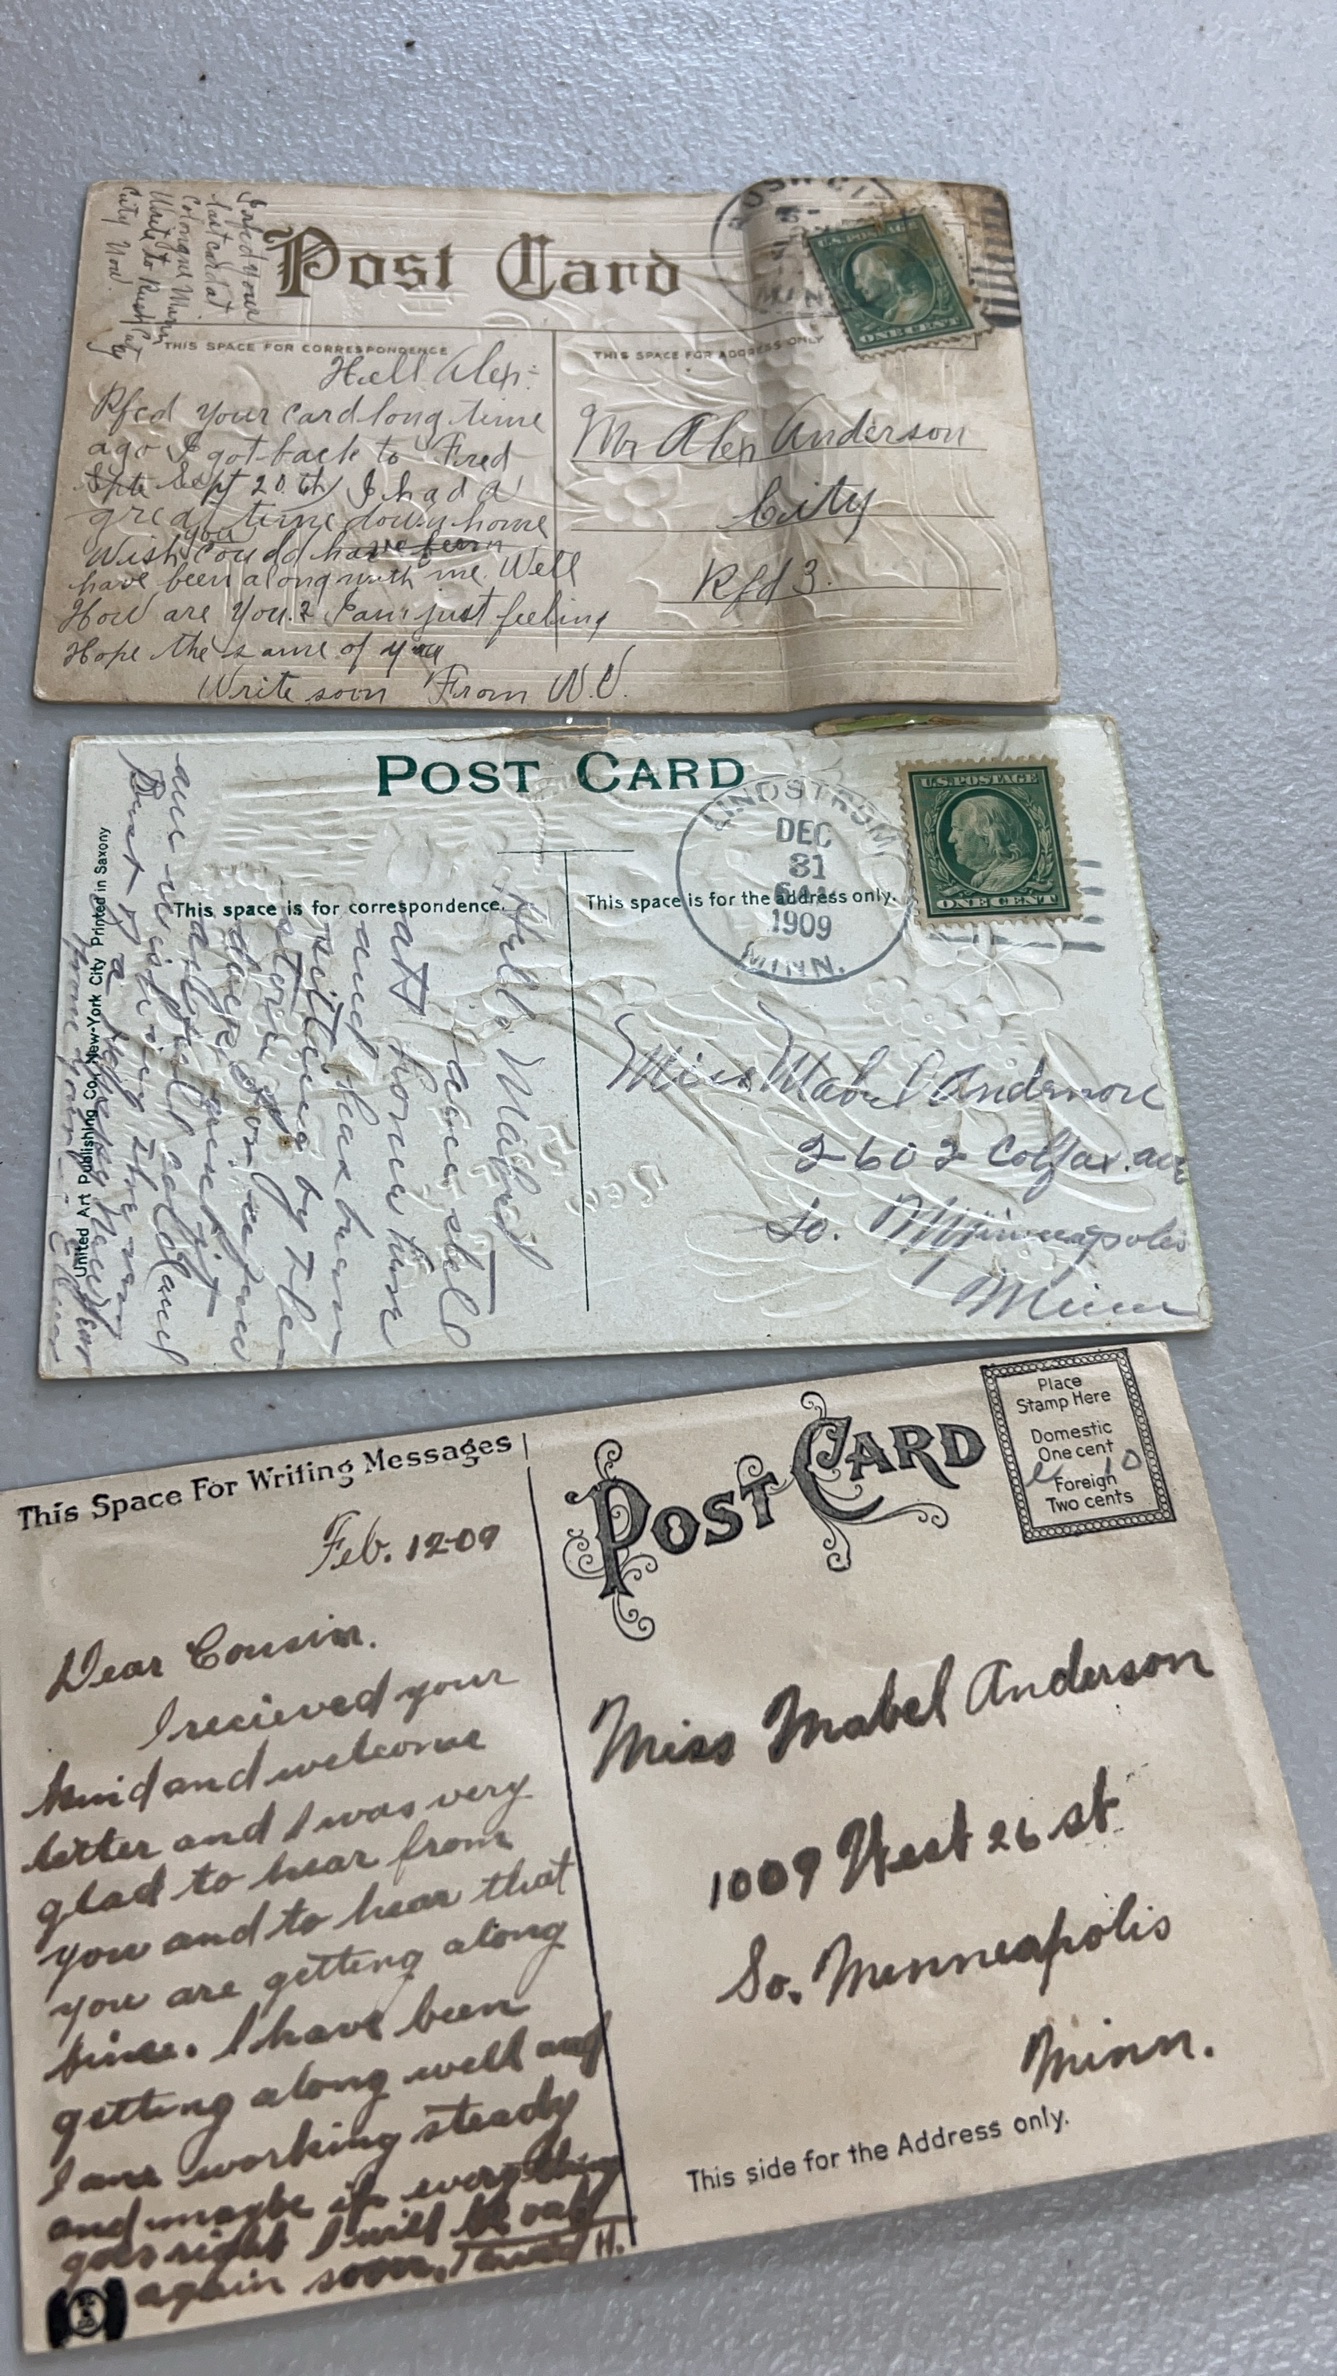 Post Card
your
last card at
Colongne Minn
Write to Rush City
City Now.
RUSH CI
MINN
U.S. POSTAGE
ONE CENT
THIS SPACE FOR CORRESPONDENCE
THIS SPACE FOR ADDRESS ONLY
Hell Alex:
Rfcd your card long time
ago I got back to Fred
Sept 20.th I had a
great time down home
you
Wish could have been
have been along with me. Well
How are you? I am just feeling
Hope the same of you
Write soon From N.V.
Mr Alex Anderson
City
Rfd 3.
POST CARD
LINDSTROM
DEC
31
1909
MINN.
U.S. POSTAGE
ONE CENT
This space is for correspondence.
This space is for the address only.
Hello Mabel
I am still
at home
and has been
sitting by the
store
all
and wishing the very
Best of a New Year
from
United Art Publishing Co. New-York City Printed in Saxony
Miss Mabel Anderson
2602 Colfax. ave
So. Minneapolis
Minn
This Space For Writing Messages
POST CARD
Place
Stamp Here
Domestic
One cent
10
Foreign
Two cents
Feb. 12-09
Dear Cousin.
I recieved your
kind and welcome
letter and I was very
glad to hear from
you and to hear that
you are getting along
fine. I have been
getting along well and
I am working steady
and maybe if everything
goes right I will be
again soon. H.
Miss Mabel Anderson
1009 West 26 st
So. Minneapolis
Minn.
This side for the Address only.